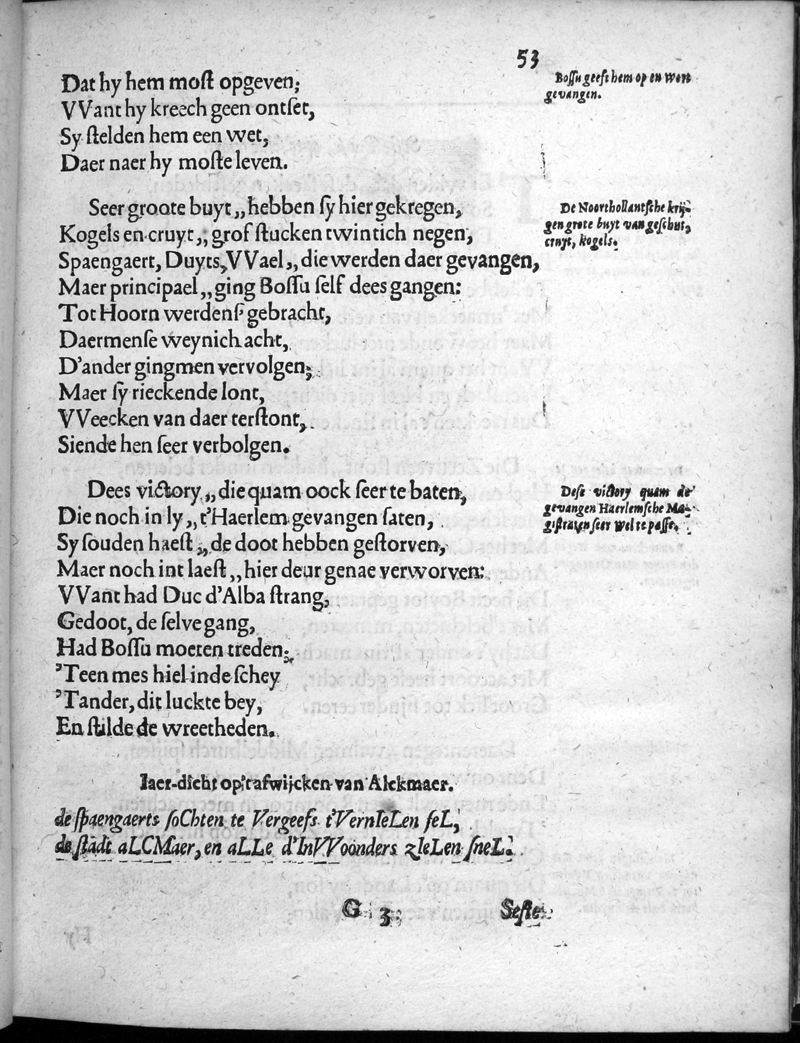 53
Dat hy hem moſt opgeven;
VVant hy kreech geen ontſet,
Sy ſtelden hem een wet,
Daer naer hy moſte leven.
Boſſu geeft hem op en wort
gevangen.
Seer groote buyt„ hebben ſy hier gekregen,
Kogels en cruyt„ grof ſtucken twintich negen,
Spaengaert, Duyts, VVael„ die werden daer gevangen,
Maer principael„ ging Boſſu ſelf dees gangen:
Tot Hoorn werdenſ' gebracht,
Daermenſe weynich acht,
D'ander gingmen vervolgen;
Maer ſy rieckende lont,
VVeecken van daer terſtont,
Siende hen ſeer verbolgen.
De Noorthollantſche krij-
gen grote buyt van geſchut,
cruyt, kogels.
Dees victory„ die quam oock ſeer te baten,
Die noch in ly„ t'Haerlem gevangen ſaten,
Sy ſouden haeſt„ de doot hebben geſtorven,
Maer noch int laeſt„ hier deur genae verworven:
VVant had Duc d'Alba ſtrang,
Gedoot, de ſelve gang,
Had Boſſu moeten treden;
'Teen mes hiel inde ſchey
'Tander, dit luckte bey,
En ſtilde de wreetheden.
Deſe victory quam de
gevangen Haerlemſche Ma-
giſtraten ſeer wel te paſſe.
Iaer-dicht op't afwijcken van Alckmaer.
de ſpaengaerts ſoChten te Vergeefs t'VernIeLen feL,
de ſtadt aLCMaer, en aLLe d'InVVoonders zIeLen ſneL.
G 3
Seſte